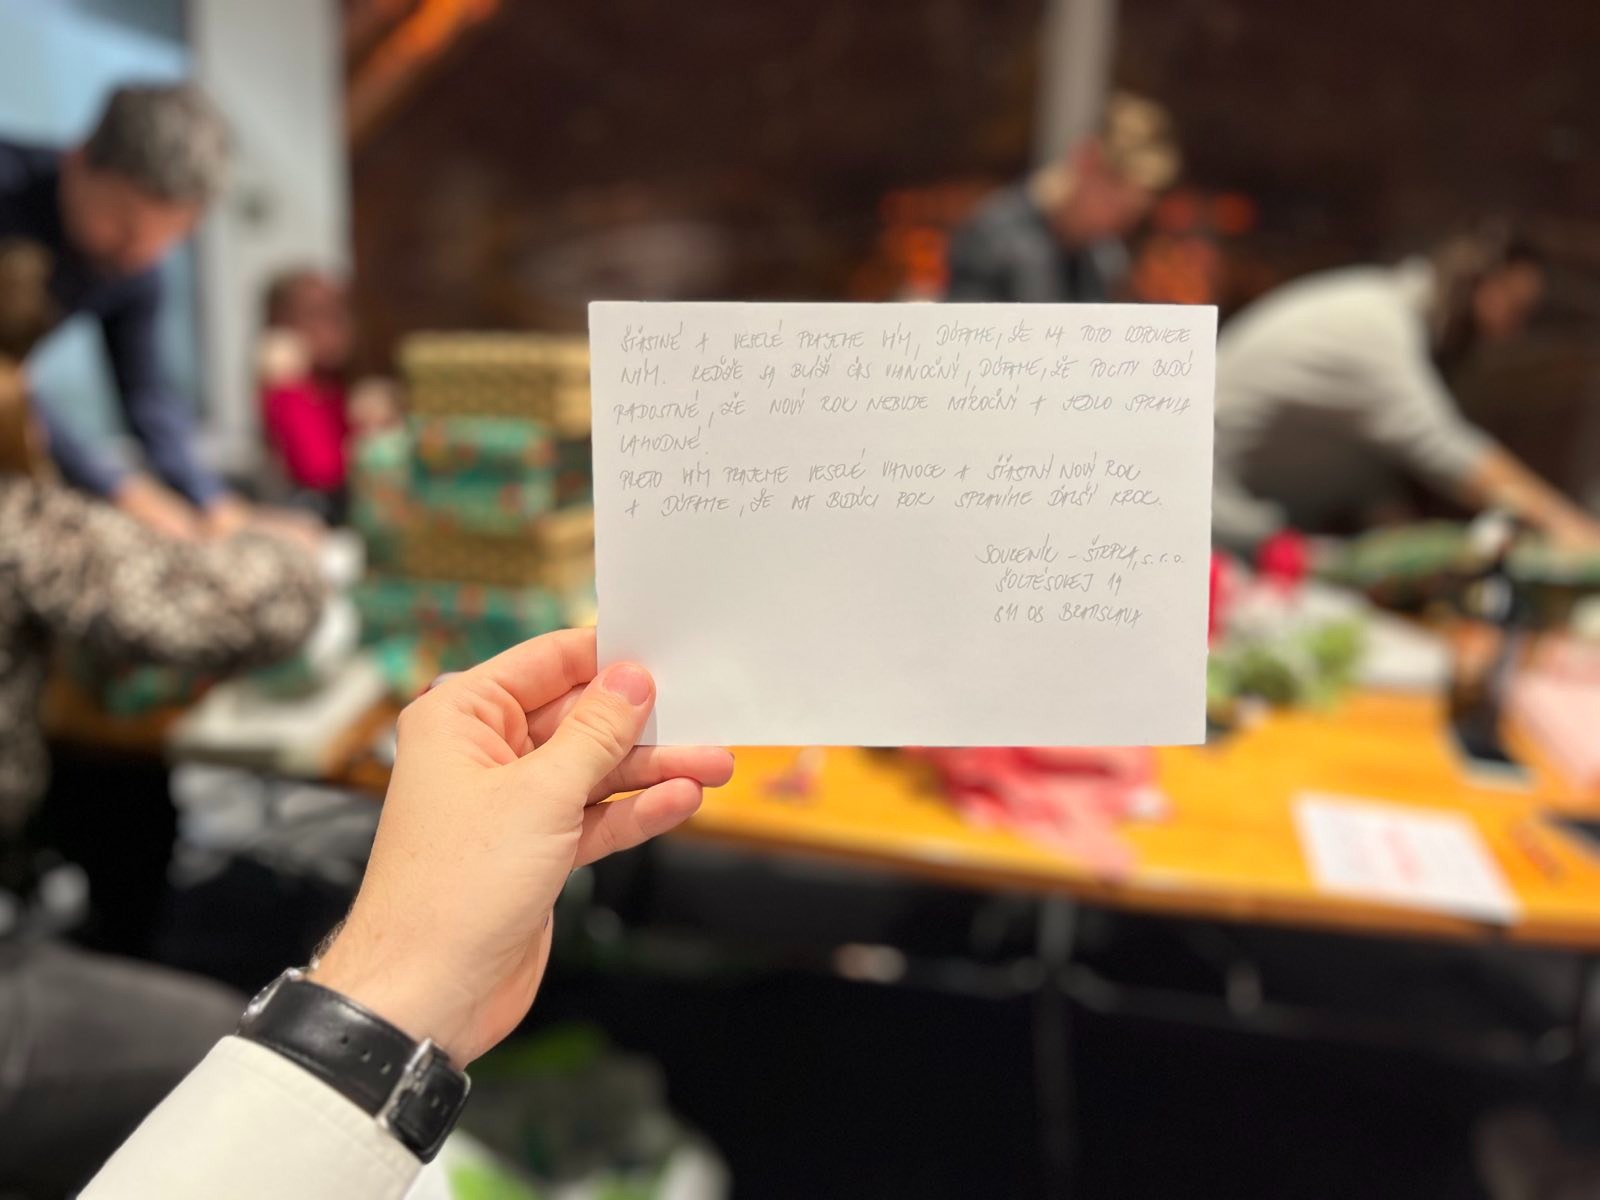 ŠŤASTNÉ A VESELÉ PRAJEME VÁM, DÚFAME, ŽE NA TOTO ODPOVIETE
NÁM. KEĎŽE SA BLÍŽI ČAS VIANOČNÝ, DÚFAME, ŽE POCITY BUDÚ
RADOSTNÉ, ŽE NOVÝ ROK NEBUDE NÁROČNÝ A JEDLO SPRAVIA
LAHODNÉ.
PRETO VÁM PRAJEME VESELÉ VIANOCE A ŠŤASTNÝ NOVÝ ROK
A DÚFAME, ŽE NA BUDÚCI ROK SPRAVÍME ĎALŠÍ KROK.
SOUKENÍK - ŠTRPKA, s.r.o.
ŠOLTÉSOVEJ 14
811 08 BRATISLAVA